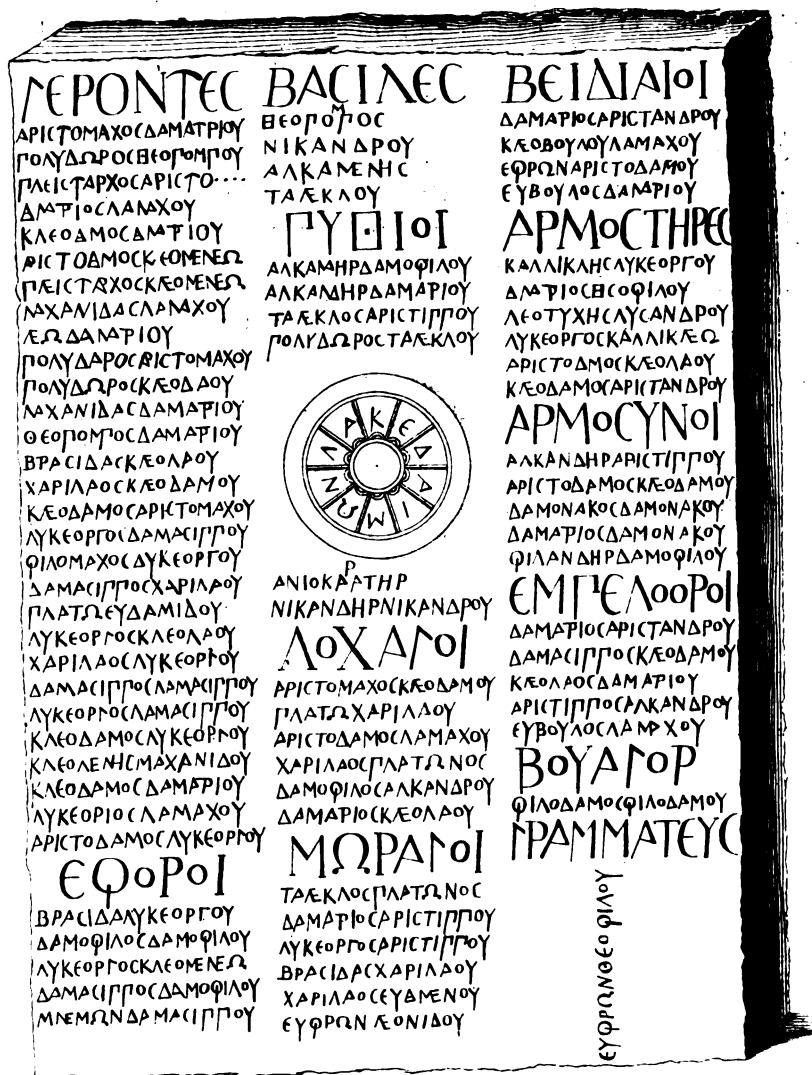 ΓΕΡΟΝΤΕϹ
ΑΡΙϹΤΟΜΑΧΟϹΔΑΜΑΤΡΙΟΥ
ΠΟΛΥΔΩΡΟϹΘΕΟΠΟΜΠΟΥ
ΠΛΕΙϹΤΑΡΧΟϹΑΡΙϹΤΟ····
ΔΑΜΑΤΡΙΟϹΛΑΜΑΧΟΥ
ΚΛΕΟΔΑΜΟϹΔΑΜΑΤΡΙΟΥ
ΑΡΙϹΤΟΔΑΜΟϹΚΛΕΟΜΕΝΕΩ
ΠΛΕΙϹΤΑΡΧΟϹΚΛΕΟΜΕΝΕΩ
ΜΑΧΑΝΙΔΑϹΛΑΜΑΧΟΥ
ΛΕΩΔΑΜΑΤΡΙΟΥ
ΠΟΛΥΔΑΡΟϹΑΡΙϹΤΟΜΑΧΟΥ
ΠΟΛΥΔΩΡΟϹΚΛΕΟΔΑΟΥ
ΜΑΧΑΝΙΔΑϹΔΑΜΑΤΡΙΟΥ
ΘΕΟΠΟΜΠΟϹΔΑΜΑΤΡΙΟΥ
ΒΡΑϹΙΔΑϹΚΛΕΟΛΑΟΥ
ΧΑΡΙΛΑΟϹΚΛΕΟΔΑΜΟΥ
ΚΛΕΟΔΑΜΟϹΑΡΙϹΤΟΜΑΧΟΥ
ΛΥΚΕΟΡΓΟϹΔΑΜΑϹΙΠΠΟΥ
ΦΙΛΟΜΑΧΟϹΛΥΚΕΟΡΓΟΥ
ΔΑΜΑϹΙΠΠΟϹΧΑΡΙΛΑΟΥ
ΠΛΑΤΩΕΥΔΑΜΙΔΟΥ
ΛΥΚΕΟΡΓΟϹΚΛΕΟΛΑΟΥ
ΧΑΡΙΛΑΟϹΛΥΚΕΟΡΓΟΥ
ΔΑΜΑϹΙΠΠΟϹΛΑΜΑϹΙΠΠΟΥ
ΛΥΚΕΟΡΓΟϹΛΑΜΑϹΙΠΠΟΥ
ΚΛΕΟΔΑΜΟϹΛΥΚΕΟΡΓΟΥ
ΚΛΕΟΛΕΝΗϹΜΑΧΑΝΙΔΟΥ
ΚΛΕΟΔΑΜΟϹΔΑΜΑΤΡΙΟΥ
ΛΥΚΕΟΡΙΟϹΛΑΜΑΧΟΥ
ΑΡΙϹΤΟΔΑΜΟϹΛΥΚΕΟΡΓΟΥ
ΕΦΟΡΟΙ
ΒΡΑϹΙΔΑΛΥΚΕΟΡΓΟΥ
ΔΑΜΟΦΙΛΟϹΔΑΜΟΦΙΛΟΥ
ΛΥΚΕΟΡΓΟϹΚΛΕΟΜΕΝΕΩ
ΔΑΜΑϹΙΠΠΟϹΔΑΜΟΦΙΛΟΥ
ΜΝΕΜΩΝΔΑΜΑϹΙΠΠΟΥ
ΒΑϹΙΛΕϹ
ΘΕΟΠΟΜΠΟϹ
ΝΙΚΑΝΔΡΟΥ
ΑΛΚΑΜΕΝΗϹ
ΤΑΛΕΚΛΟΥ
ΠΥΘΙΟΙ
ΑΛΚΑΜΗΡΔΑΜΟΦΙΛΟΥ
ΑΛΚΑΝΔΗΡΔΑΜΑΡΙΟΥ
ΤΑΛΕΚΛΟϹΑΡΙϹΤΙΠΠΟΥ
ΠΟΛΥΔΩΡΟϹΤΑΛΕΚΛΟΥ
ΛΑΚΕΔΑΙΜΩΝ
ΑΝΙΟΚΡΑΤΗΡ
ΝΙΚΑΝΔΗΡΝΙΚΑΝΔΡΟΥ
ΛΟΧΑΓΟΙ
ΑΡΙϹΤΟΜΑΧΟϹΚΛΕΟΔΑΜΟΥ
ΠΛΑΤΩΧΑΡΙΛΑΟΥ
ΑΡΙϹΤΟΔΑΜΟϹΛΑΜΑΧΟΥ
ΧΑΡΙΛΑΟϹΠΛΑΤΩΝΟϹ
ΔΑΜΟΦΙΛΟϹΑΛΚΑΝΔΡΟΥ
ΔΑΜΑΤΡΙΟϹΚΛΕΟΛΑΟΥ
ΜΩΡΑΓΟΙ
ΤΑΛΕΚΛΟϹΠΛΑΤΩΝΟϹ
ΔΑΜΑΤΡΙΟϹΑΡΙϹΤΙΠΠΟΥ
ΛΥΚΕΟΡΓΟϹΑΡΙϹΤΙΠΠΟΥ
ΒΡΑϹΙΔΑϹΧΑΡΙΛΑΟΥ
ΧΑΡΙΛΑΟϹΕΥΔΑΜΕΝΟΥ
ΕΥΦΡΩΝΛΕΟΝΙΔΟΥ
ΒΕΙΔΙΑΙΟΙ
ΔΑΜΑΤΡΙΟϹΑΡΙϹΤΑΝΔΡΟΥ
ΚΛΕΟΒΟΥΛΟΥΛΑΜΑΧΟΥ
ΕΦΡΩΝΑΡΙϹΤΟΔΑΜΟΥ
ΕΥΒΟΥΛΟϹΔΑΜΑΤΡΙΟΥ
ΑΡΜΟϹΤΗΡΕϹ
ΚΑΛΛΙΚΛΗϹΛΥΚΕΟΡΓΟΥ
ΔΑΜΑΤΡΙΟϹΘΕΟΦΙΛΟΥ
ΛΕΟΤΥΧΗϹΛΥϹΑΝΔΡΟΥ
ΛΥΚΕΟΡΓΟϹΚΑΛΛΙΚΛΕΩ
ΑΡΙϹΤΟΔΑΜΟϹΚΛΕΟΛΑΟΥ
ΚΛΕΟΔΑΜΟϹΑΡΙϹΤΑΝΔΡΟΥ
ΑΡΜΟϹΥΝΟΙ
ΑΛΚΑΝΔΗΡΑΡΙϹΤΙΠΠΟΥ
ΑΡΙϹΤΟΔΑΜΟϹΚΛΕΟΔΑΜΟΥ
ΔΑΜΟΝΑΚΟϹΔΑΜΟΝΑΚΟΥ
ΔΑΜΑΤΡΙΟϹΔΑΜΟΝΑΚΟΥ
ΦΙΛΑΝΔΗΡΔΑΜΟΦΙΛΟΥ
ΕΜΠΕΛΟΟΡΟΙ
ΔΑΜΑΤΡΙΟϹΑΡΙϹΤΑΝΔΡΟΥ
ΔΑΜΑϹΙΠΠΟϹΚΛΕΟΔΑΜΟΥ
ΚΛΕΟΛΑΟϹΔΑΜΑΤΡΙΟΥ
ΑΡΙϹΤΙΠΠΟϹΑΛΚΑΝΔΡΟΥ
ΕΥΒΟΥΛΟϹΛΑΜΑΡΧΟΥ
ΒΟΥΑΓΟΡ
ΦΙΛΟΔΑΜΟϹΦΙΛΟΔΑΜΟΥ
ΓΡΑΜΜΑΤΕΥϹ
ΕΥΦΡΩΝΘΕΟΦΙΛΟΥ